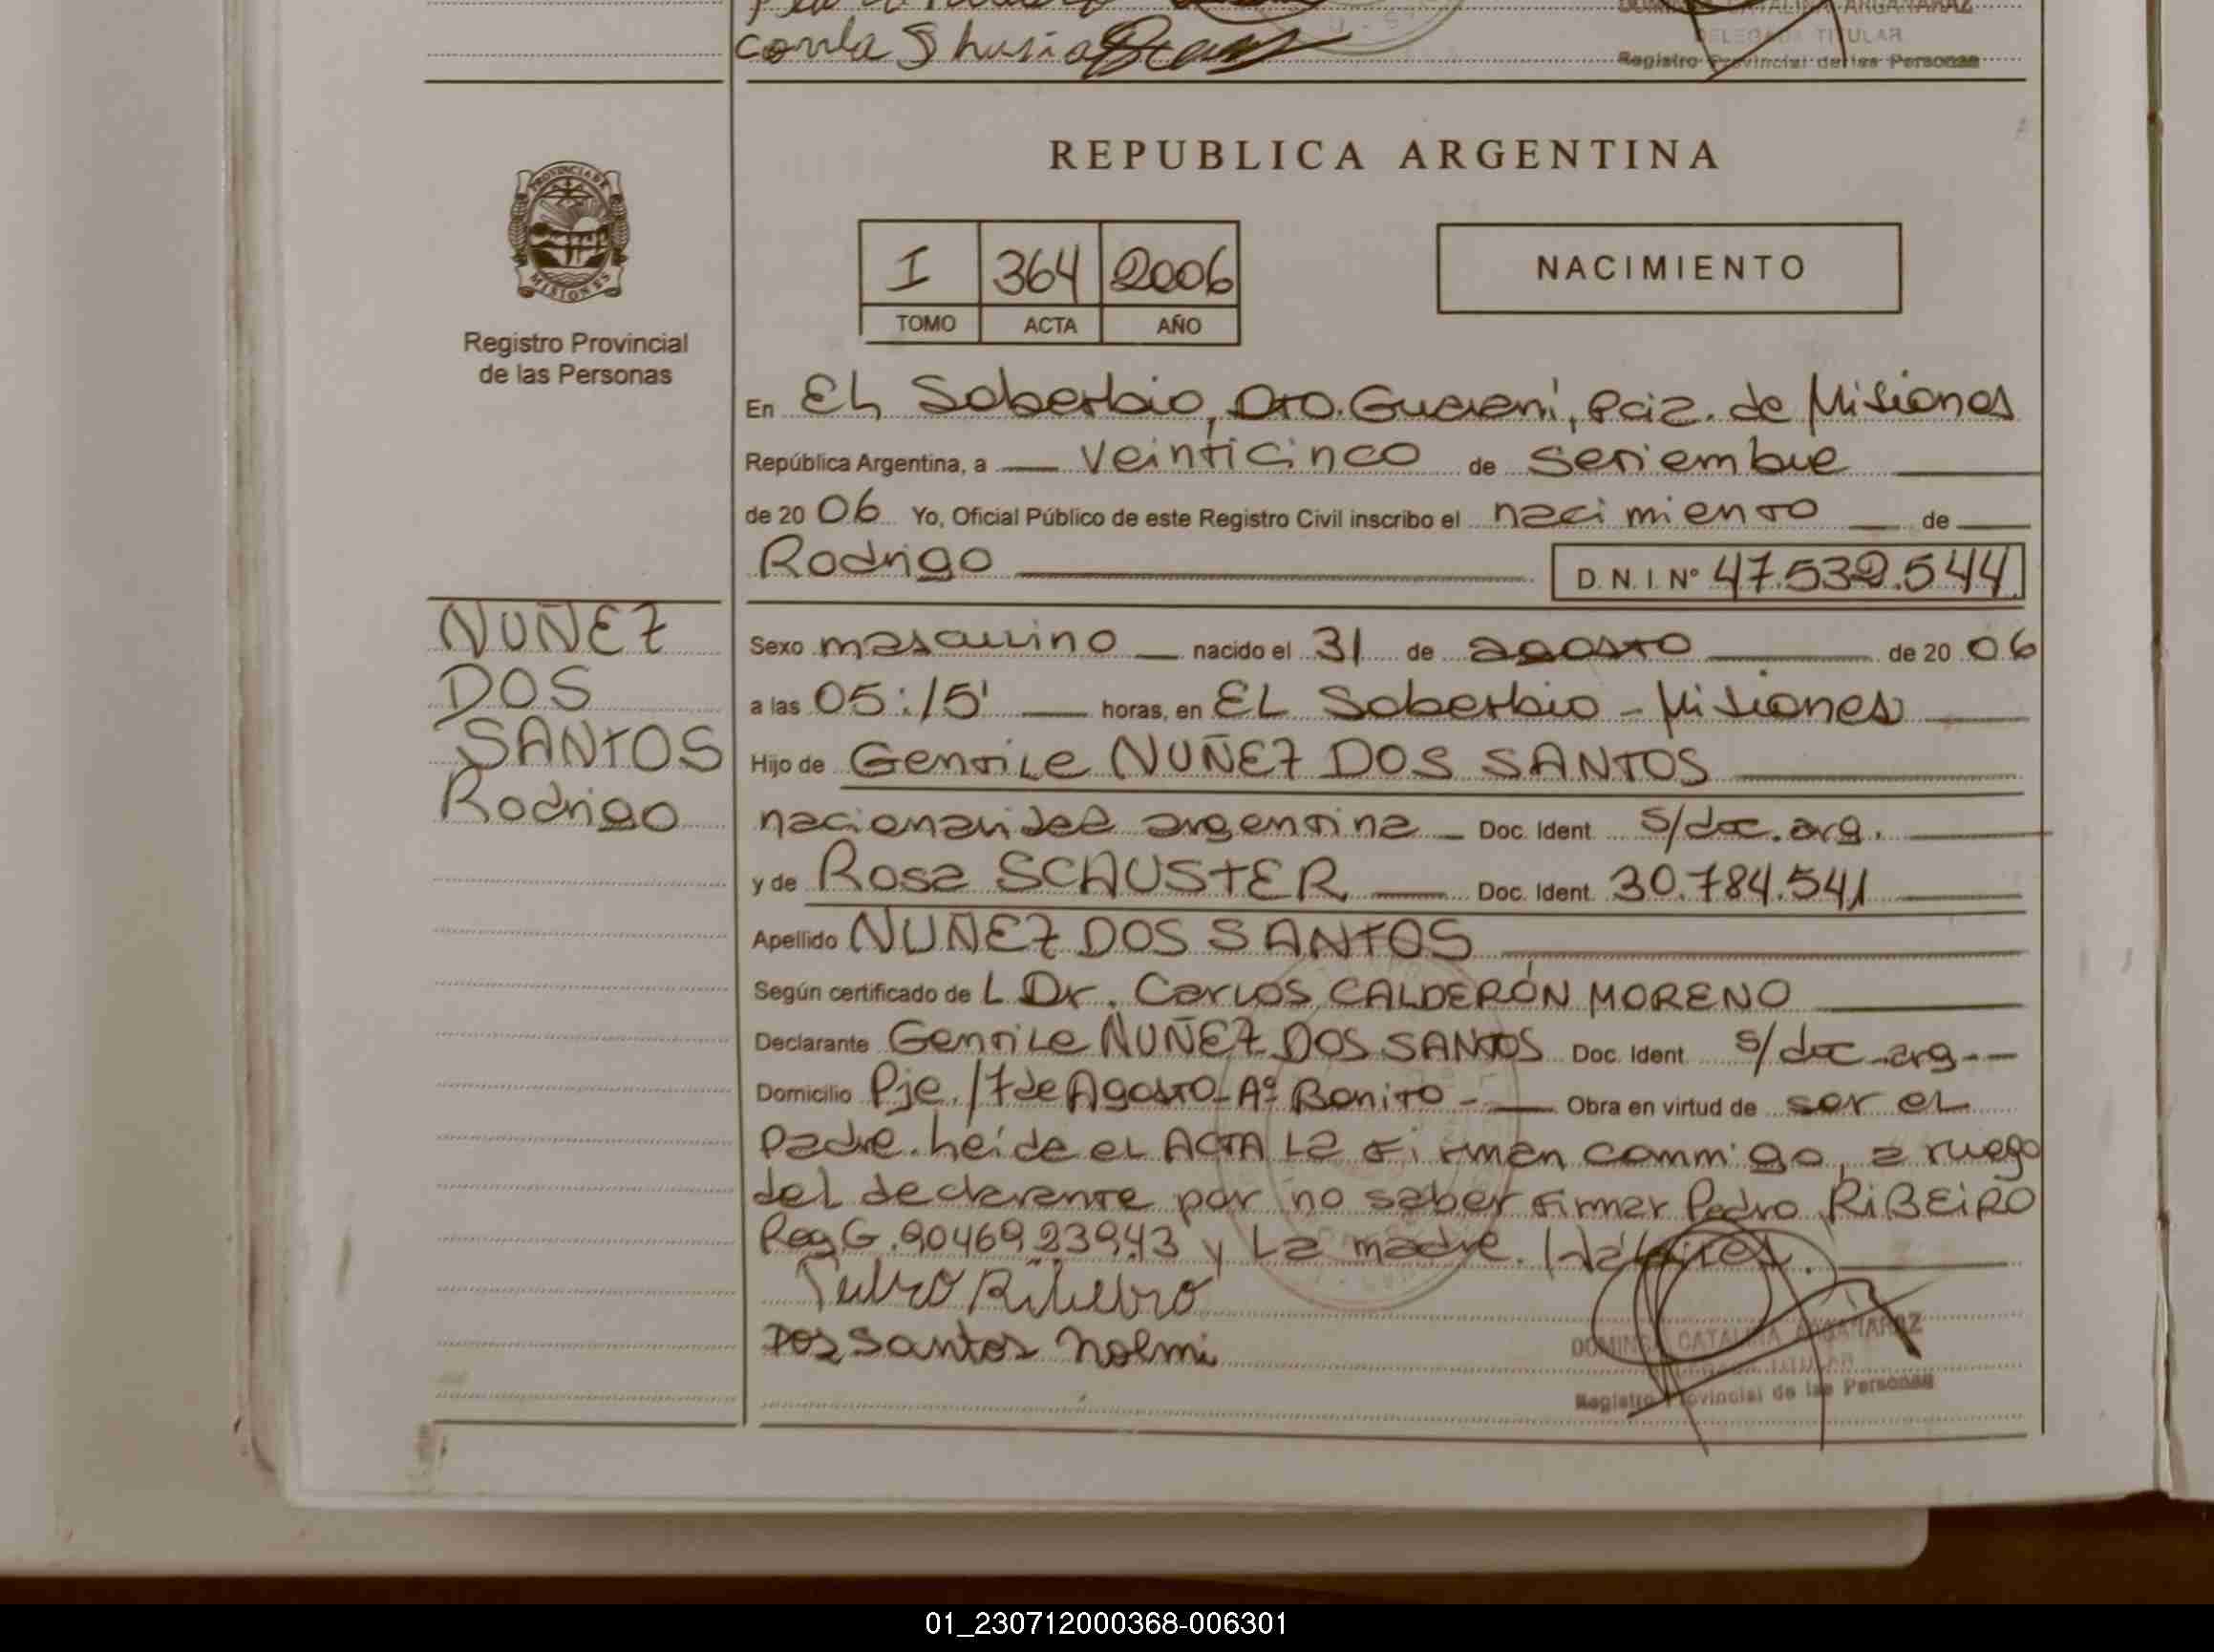 conla
DELEGADA TITULAR
Registro Provincial de las Personas
REPUBLICA ARGENTINA
PROVINCIA DE MISIONES
Registro Provincial
de las Personas
I 364 2006
TOMO ACTA AÑO
NACIMIENTO
En EL Soberbio, Dto. Guaraní, Pcia. de Misiones
República Argentina, a veinticinco de setiembre
de 20 06 Yo, Oficial Público de este Registro Civil inscribo el nacimiento de
Rodrigo D. N. I. Nº 47.532.544
NUÑEZ
DOS
SANTOS
Rodrigo
Sexo masculino nacido el 31 de agosto de 20 06
a las 05:15' horas, en EL Soberbio - Misiones
Hijo de Gentile NUÑEZ DOS SANTOS
nacionalidad argentina Doc. Ident. s/doc. arg.
y de Rosa SCHUSTER Doc. Ident. 30.784.541
Apellido NUÑEZ DOS SANTOS
Según certificado de L Dr. Carlos CALDERÓN MORENO
Declarante Gentile NUÑEZ DOS SANTOS Doc. Ident. s/doc. arg.
Domicilio Pje. 17 de Agosto - Aº Bonito - Obra en virtud de ser el
padre. Leída el ACTA La firman conmigo, a ruego
del declarante por no saber firmar Pedro RIBEIRO
Reg G. 9046923943 y La madre.
Pedro Ribeiro
Dos Santos Noemi
DOMINGA CATALINA ARGAÑARAZ
DELEGADA TITULAR
Registro Provincial de las Personas
01_230712000368-006301